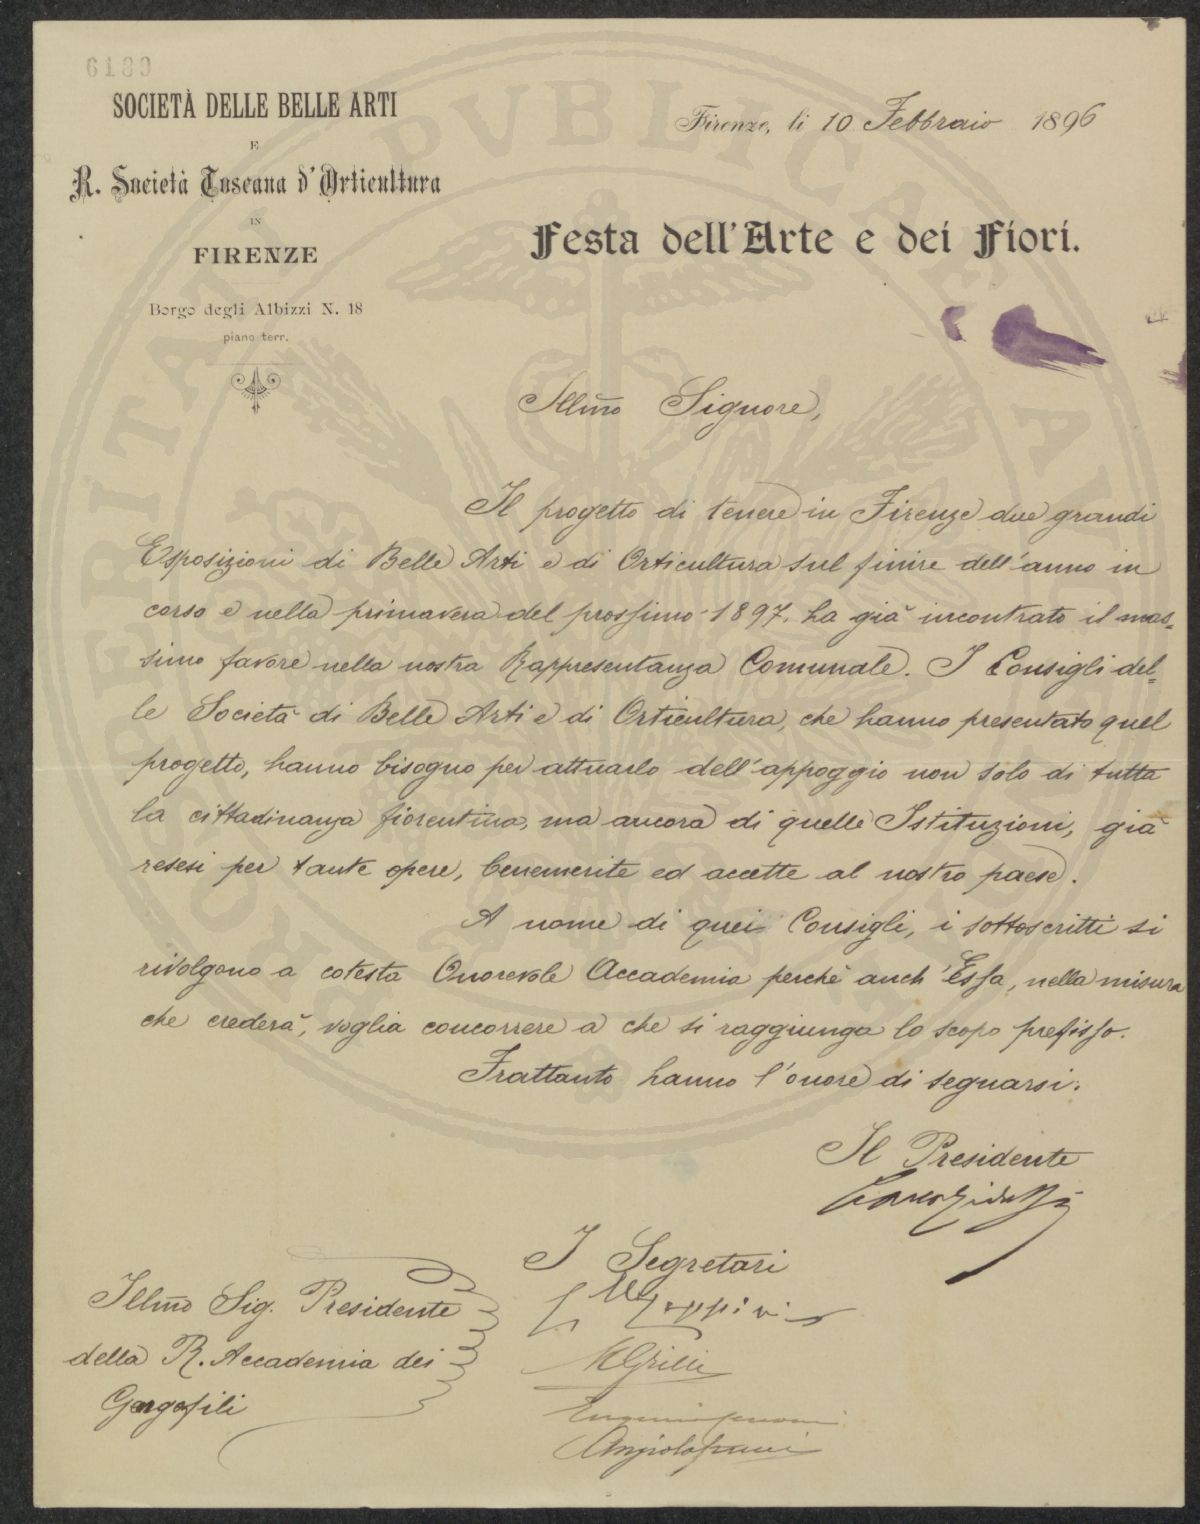 6180
SOCIETÀ DELLE BELLE ARTI
E
R. Società Toscana d'Orticultura
IN
FIRENZE
Borgo degli Albizzi N. 18
piano terr.
Firenze, li 10 Febbraio 1896
Festa dell'Arte e dei Fiori.
Illmo Signore,
Il progetto di tenere in Firenze due grandi
Esposizioni di Belle Arti e di Orticultura sul finire dell'anno in
corso e nella primavera del prossimo 1897. ha già incontrato il mas=
simo favore nella nostra Rappresentanza Comunale. I Consigli del=
le Società di Belle Arti e di Orticultura, che hanno presentato quel
progetto, hanno bisogno per attuarlo dell'appoggio non solo di tutta
la cittadinanza fiorentina, ma ancora di quelle Istituzioni, già
resesi per tante opere, benemerite ed accette al nostro paese.
A nome di quei Consigli, i sottoscritti si
rivolgono a cotesta Onorevole Accademia perchè anch'Essa, nella misura
che crederà, voglia concorrere a che si raggiunga lo scopo prefisso.
Frattanto hanno l'onore di segnarsi.
Il Presidente
I Segretari
AGrilli
Angiolo
Illmo Sig. Presidente
della R. Accademia dei
Georgofili